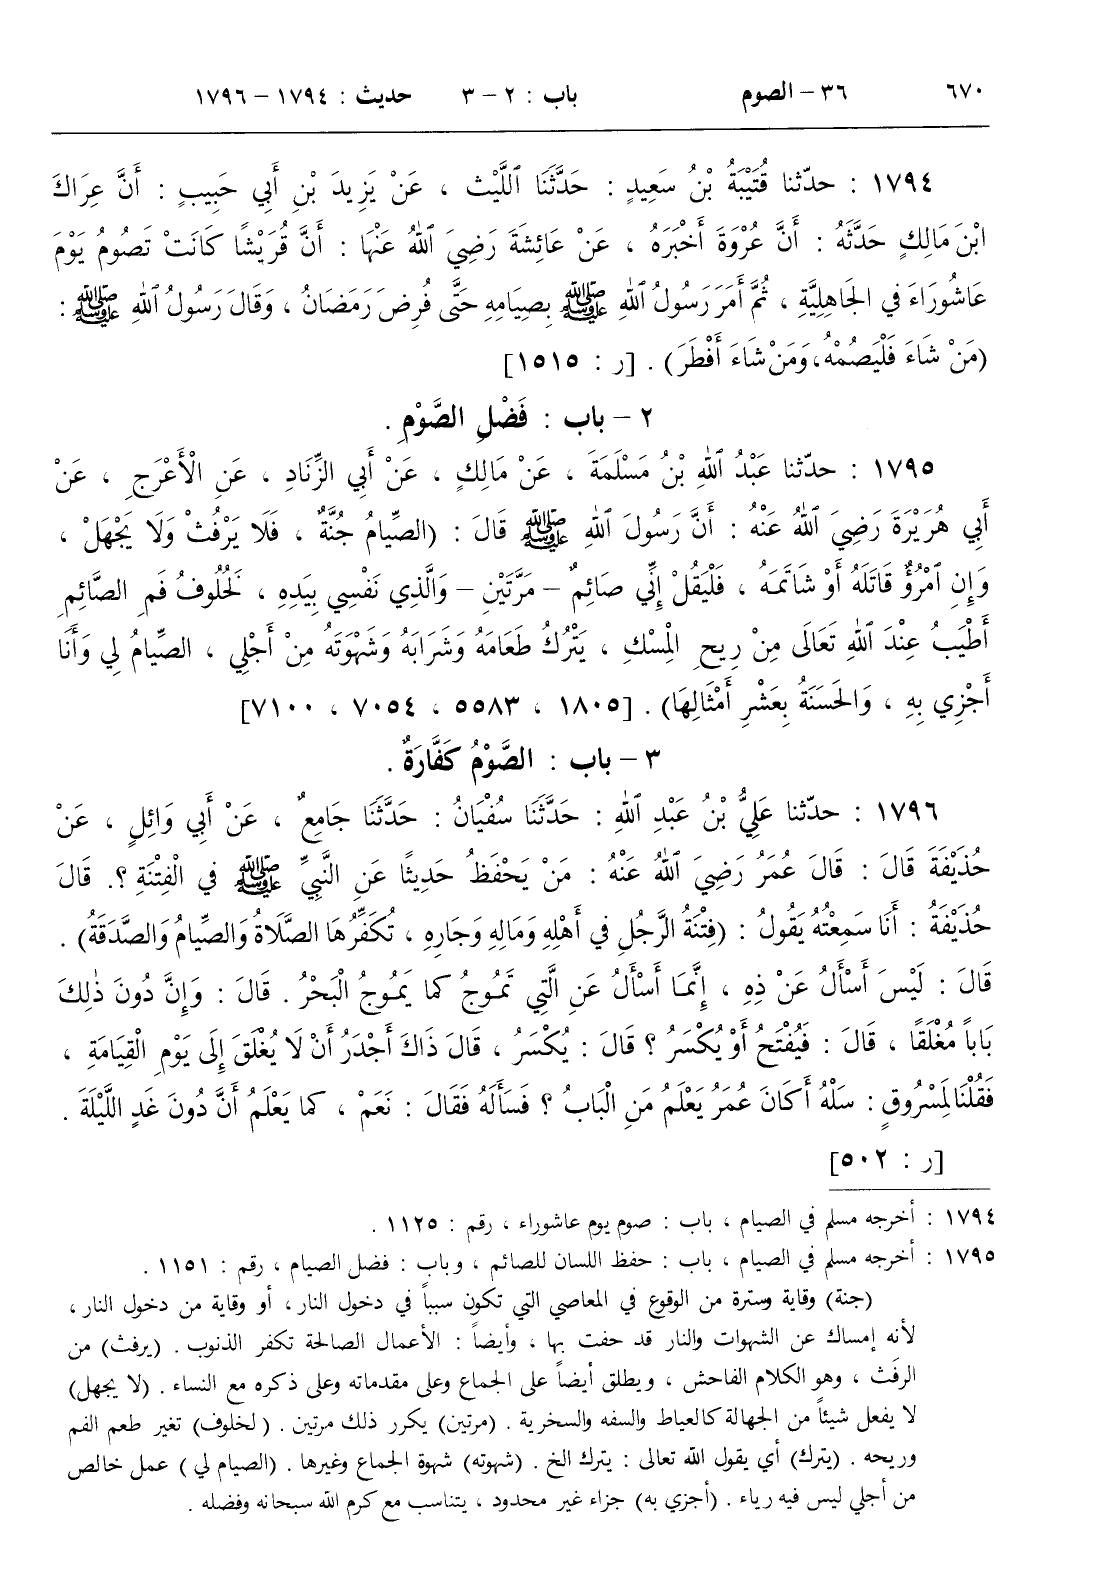 ٦٧٠ ٣٦ – الصوم باب : ٢ – ٣ حديث : ١٧٩٤ – ١٧٩٦
١٧٩٤ : حدّثنا قُتَيْبَةُ بْنُ سَعِيدٍ : حَدَّثَنَا ٱللَّيْث ، عَنْ يَزِيدَ بْنِ أَبِي حَبِيبٍ : أَنَّ عِرَاكَ
ابْنَ مَالِكٍ حَدَّثَهُ : أَنَّ عُرْوَةَ أَخْبَرَهُ ، عَنْ عَائِشَةَ رَضِيَ ٱللهُ عَنْهَا : أَنَّ قُرَيْشًا كَانَتْ تَصُومُ يَوْمَ
عَاشُورَاءَ في الجَاهِلِيَّةِ ، ثُمَّ أَمَرَ رَسُولُ ٱللهِ ﷺ بِصِيَامِهِ حَتَّى فُرِضَ رَمَضَانُ ، وَقَالَ رَسُولُ ٱللهِ ﷺ :
(مَنْ شَاءَ فَلْيَصُمْهُ، وَمَنْ شَاءَ أَفْطَرَ) . [ر : ١٥١٥]
٢ – باب : فَضْلِ الصَّوْمِ .
١٧٩٥ : حدّثنا عَبْدُ ٱللهِ بْنُ مَسْلَمَةَ ، عَنْ مَالِكٍ ، عَنْ أَبِي الزِّنَادِ ، عَنِ الْأَعْرَجِ ، عَنْ
أَبِي هُرَيْرَةَ رَضِيَ ٱللهُ عَنْهُ : أَنَّ رَسُولَ ٱللهِ ﷺ قَالَ : (الصِّيَامُ جُنَّةٌ ، فَلَا يَرْفُثْ وَلَا يَجْهَلْ ،
وَإِنِ ٱمْرُؤٌ قَاتَلَهُ أَوْ شَاتَمَهُ ، فَلْيَقُلْ إِنِّي صَائِمٌ – مَرَّتَيْنِ – وَالَّذِي نَفْسِي بِيَدِهِ ، لَخُلُوفُ فَمِ الصَّائِمِ
أَطْيَبُ عِنْدَ ٱللهِ تَعَالَى مِنْ رِيحِ الْمِسْكِ ، يَتْرُكُ طَعَامَهُ وَشَرَابَهُ وَشَهْوَتَهُ مِنْ أَجْلِي ، الصِّيَامُ لِي وَأَنَا
أَجْزِي بِهِ ، وَالحَسَنَةُ بِعَشْرِ أَمْثَالِهَا) . [١٨٠٥ ، ٥٥٨٣ ، ٧٠٥٤ ، ٧١٠٠]
٣ – باب : الصَّوْمُ كَفَّارَةٌ .
١٧٩٦ : حدّثنا عَلِيُّ بْنُ عَبْدِ ٱللهِ : حَدَّثَنَا سُفْيَانُ : حَدَّثَنَا جَامِعٌ ، عَنْ أَبِي وَائِلٍ ، عَنْ
حُذَيْفَةَ قَالَ : قَالَ عُمَرُ رَضِيَ ٱللهُ عَنْهُ : مَنْ يَحْفَظُ حَدِيثًا عَنِ النَّبِيِّ ﷺ في الْفِتْنَةِ ؟. قَالَ
حُذَيْفَةُ : أَنَا سَمِعْتُهُ يَقُولُ : (فِتْنَةُ الرَّجُلِ في أَهْلِهِ وَمَالِهِ وَجَارِهِ ، تُكَفِّرُهَا الصَّلَاةُ وَالصِّيَامُ وَالصَّدَقَةُ) .
قَالَ : لَيْسَ أَسْأَلُ عَنْ ذِهِ ، إِنَّمَا أَسْأَلُ عَنِ الَّتِي تَمُوجُ كما يَمُوجُ الْبَحْرُ . قَالَ : وَإِنَّ دُونَ ذٰلِكَ
بَاباً مُغْلَقًا ، قَالَ : فَيُفْتَحُ أَوْ يُكْسَرُ ؟ قَالَ : يُكْسَرُ ، قَالَ ذَاكَ أَجْدَرُ أَنْ لَا يُغْلَقَ إِلَى يَوْمِ الْقِيَامَةِ ،
فَقُلْنَا لِمَسْرُوقٍ : سَلْهُ أَكَانَ عُمَرُ يَعْلَمُ مَنِ الْبَابُ ؟ فَسَأَلَهُ فَقَالَ : نَعَمْ ، كما يَعْلَمُ أَنَّ دُونَ غَدٍ اللَّيْلَةَ .
[ر : ٥٠٢]
١٧٩٤ : أخرجه مسلم في الصيام ، باب : صوم يوم عاشوراء ، رقم : ١١٢٥ .
١٧٩٥ : أخرجه مسلم في الصيام ، باب : حفظ اللسان للصائم ، وباب : فضل الصيام ، رقم : ١١٥١ .
(جنة) وقاية وسترة من الوقوع في المعاصي التي تكون سبباً في دخول النار، أو وقاية من دخول النار ،
لأنه إمساك عن الشهوات والنار قد حفت بها ، وأيضاً : الأعمال الصالحة تكفر الذنوب . (يرفث) من
الرفَث ، وهو الكلام الفاحش ، ويطلق أيضاً على الجماع وعلى مقدماته وعلى ذكره مع النساء . (لا يجهل)
لا يفعل شيئاً من الجهالة كالعياط والسفه والسخرية . (مرتين) يكرر ذلك مرتين . (لخلوف) تغير طعم الفم
وريحه . (يترك) أي يقول الله تعالى : يترك الخ . (شهوته) شهوة الجماع وغيرها . (الصيام لي) عمل خالص
من أجلي ليس فيه رياء . (أجزي به) جزاء غير محدود ، يتناسب مع كرم الله سبحانه وفضله .